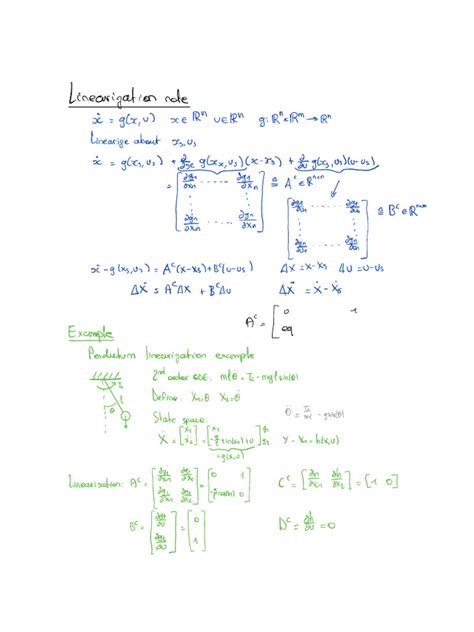 Linearization note
ẋ = g(x,u) x∈ℝⁿ u∈ℝⁿ g: ℝⁿ×ℝᵐ → ℝⁿ
Linearize about xₛ,uₛ
ẋ = g(xₛ,uₛ) + ∂/∂x g(xₛ,uₛ)(x-xₛ) + ∂/∂u g(xₛ,uₛ)(u-uₛ)
= [∂g₁/∂x₁ ... ∂g₁/∂xₙ ; ∂gₙ/∂x₁ ... ∂gₙ/∂xₙ] ≙ Aᶜ∈ℝⁿˣⁿ
[∂g₁/∂u₁ ... ; ...] ≙ Bᶜ∈
ẋ - g(xₛ,uₛ) = Aᶜ(x-xₛ)+Bᶜ(u-uₛ) Δx = x-xₛ Δu = u-uₛ
Δẋ = AᶜΔx + BᶜΔu Δẋ = ẋ - ẋₛ
Aᶜ = [0 1
eq
Example
Pendulum linearization example
2nd order ODE: mlθ̈ = Tc - mgl sin(θ)
Define: X₁=θ X₂=θ̇
θ̈ = Tc/ml - g sin(θ)
State space:
Ẋ = [ẋ₁ ; ẋ₂] = [x₂ ; -g/l sin(x₁)+u] g₁ g₂ y = x₁ = h(x,u)
= g(x,u)
Linearization: Aᶜ = [∂g₁/∂x₁ ∂g₁/∂x₂ ; ∂g₂/∂x₁ ∂g₂/∂x₂] = [0 1 ; -g/l cos(x₁) 0] Cᶜ = [∂h/∂x₁ ∂h/∂x₂] = [1 0]
Bᶜ = [∂g₁/∂u ; ∂g₂/∂u] = [0 ; 1] Dᶜ = ∂h/∂u = 0